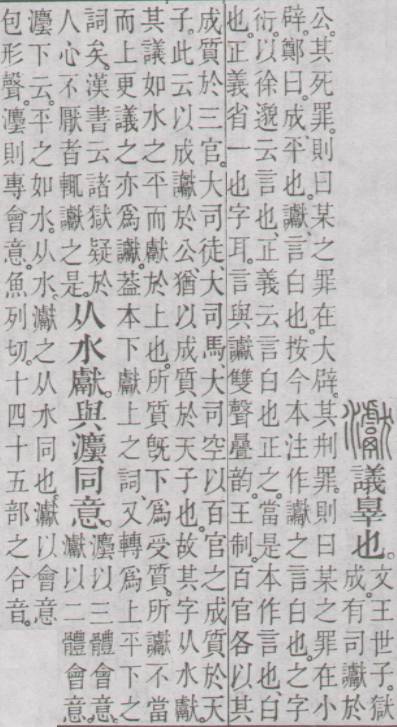 𤅊議辠也。文王世子。獄
成。有司讞於
公。其死罪。則曰某之罪在大辟。其刑罪。則曰某之罪在小
辟。鄭曰。成平也。讞、言白也。按今本注作讞之言白也。之字
衍。以徐邈云言也、正義云言白也正之。當是本作言也、白
也。正義省一也字耳。言與讞雙聲疊韵。王制。百官各以其
成質於三官。大司徒大司馬大司空以百官之成質於天
子。此云以成讞於公、猶以成質於天子也。故其字从水獻。
其議如水之平而獻於上也。所質旣下爲受質。所讞不當
而上更議之亦爲讞。葢本下獻上之詞、又轉爲上平下之
詞矣。漢書云諸獄疑於
人心不厭者輒讞之是。从水獻。與灋同意。灋以三體會意。𤅊以二體會意。
灋下云。平之如水。从水。𤅊之从水同也。𤅊以會意
包形聲。灋則專會意。魚列切。十四十五部之合音。